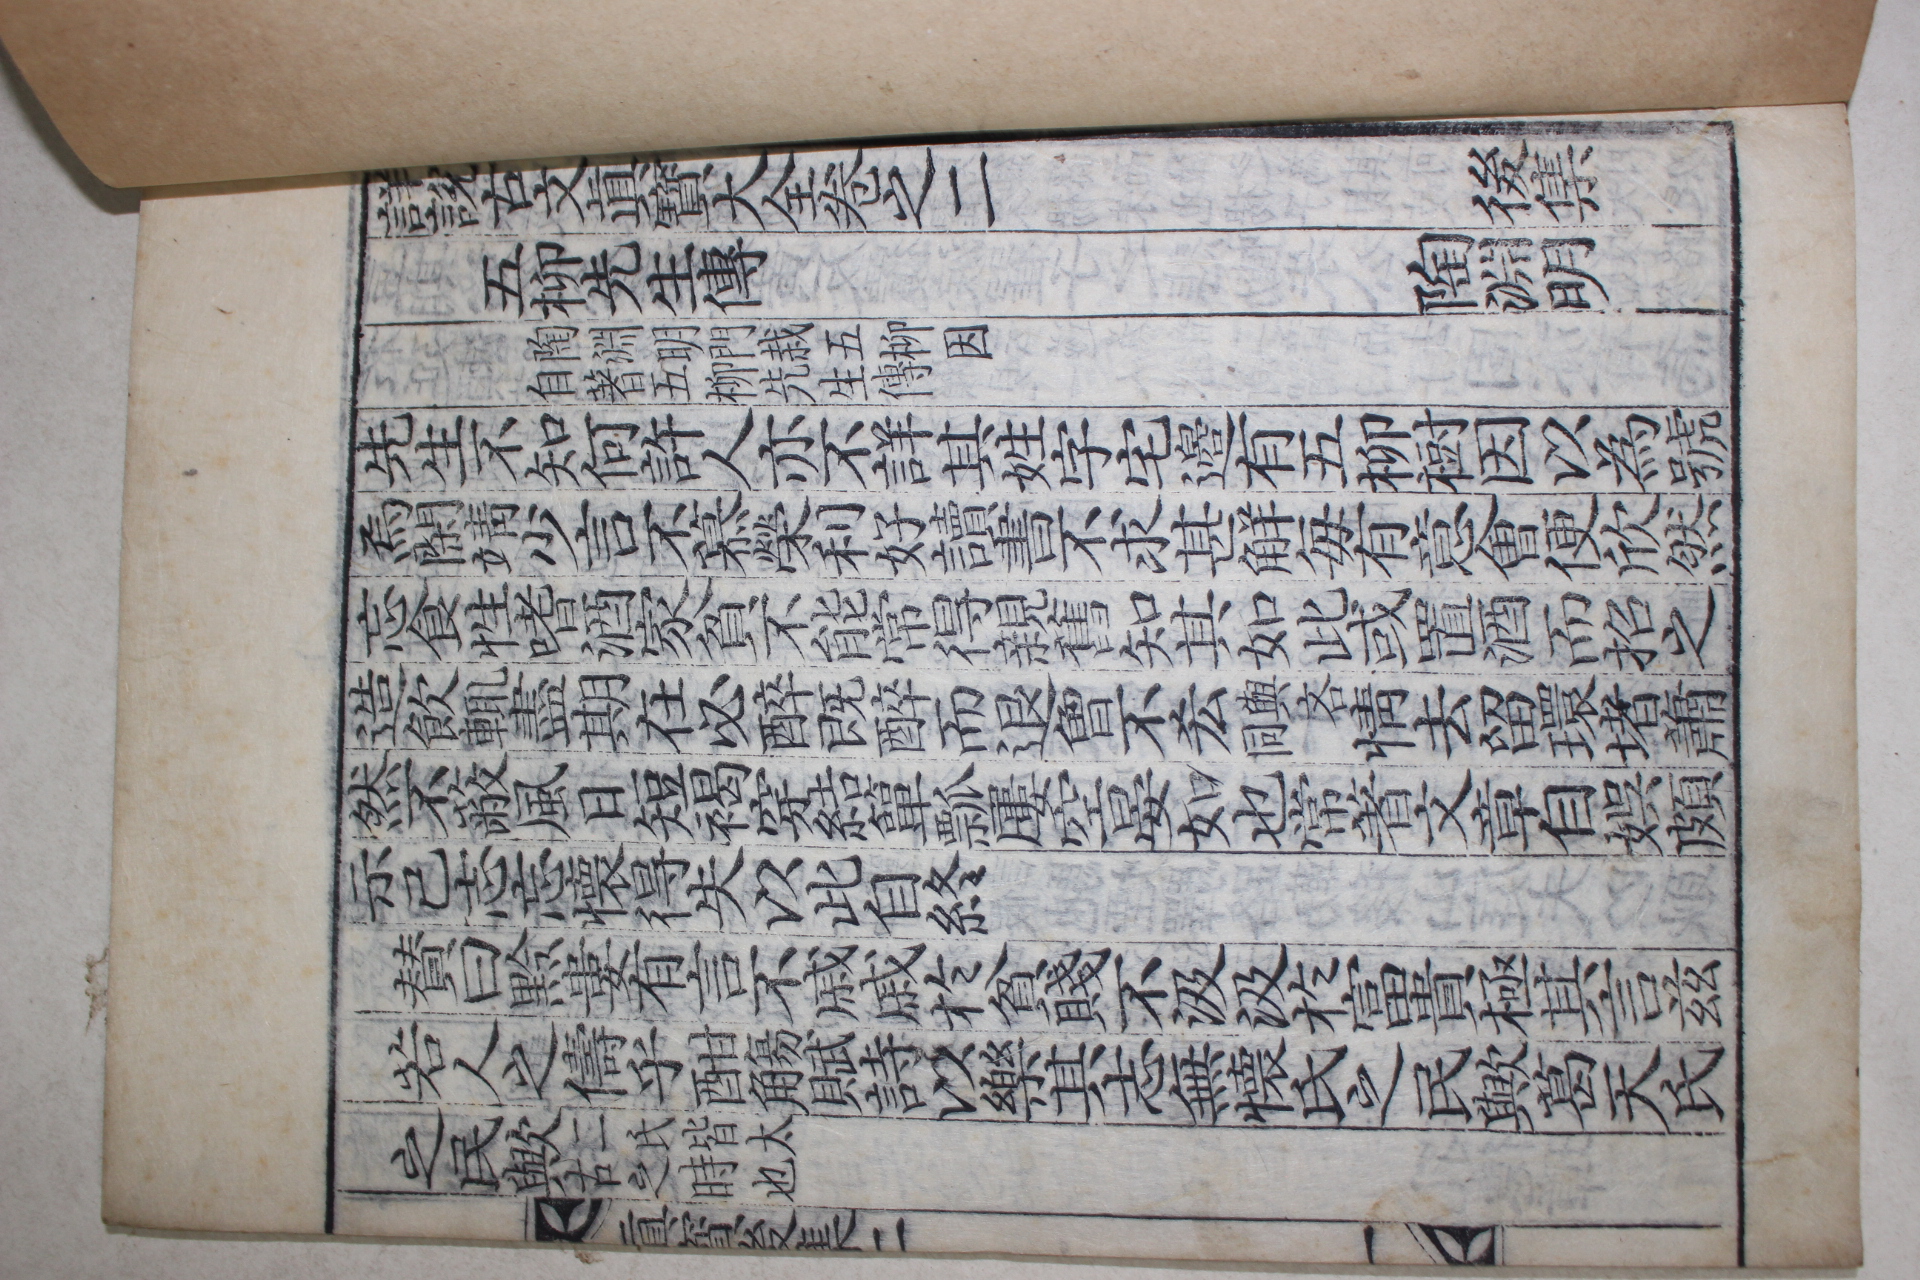 詳說古文真寶大全卷之二 後集
五柳先生傳 陶淵明
陶淵明門栽五柳因
自著五柳先生傳
先生不知何許人亦不詳其姓字宅邊有五柳樹因以為號
焉閑靖少言不慕榮利好讀書不求甚解每有意會便欣然
忘食性嗜酒家貧不能常得親舊知其如此或置酒而招之
造飲輒盡期在必醉既醉而退曾不𠫤與吝同情去留環堵蕭
然不蔽風日短褐穿結簞瓢屢空晏如也常著文章自娛頗
示己志忘懷得失以此自終
贊曰黔婁有言不戚戚於貧賤不汲汲於富貴極其言茲
若人之儔乎酣觴賦詩以樂其志無懷氏之民歟葛天氏
之民歟二氏皆太古之時也
真寶後集二 一